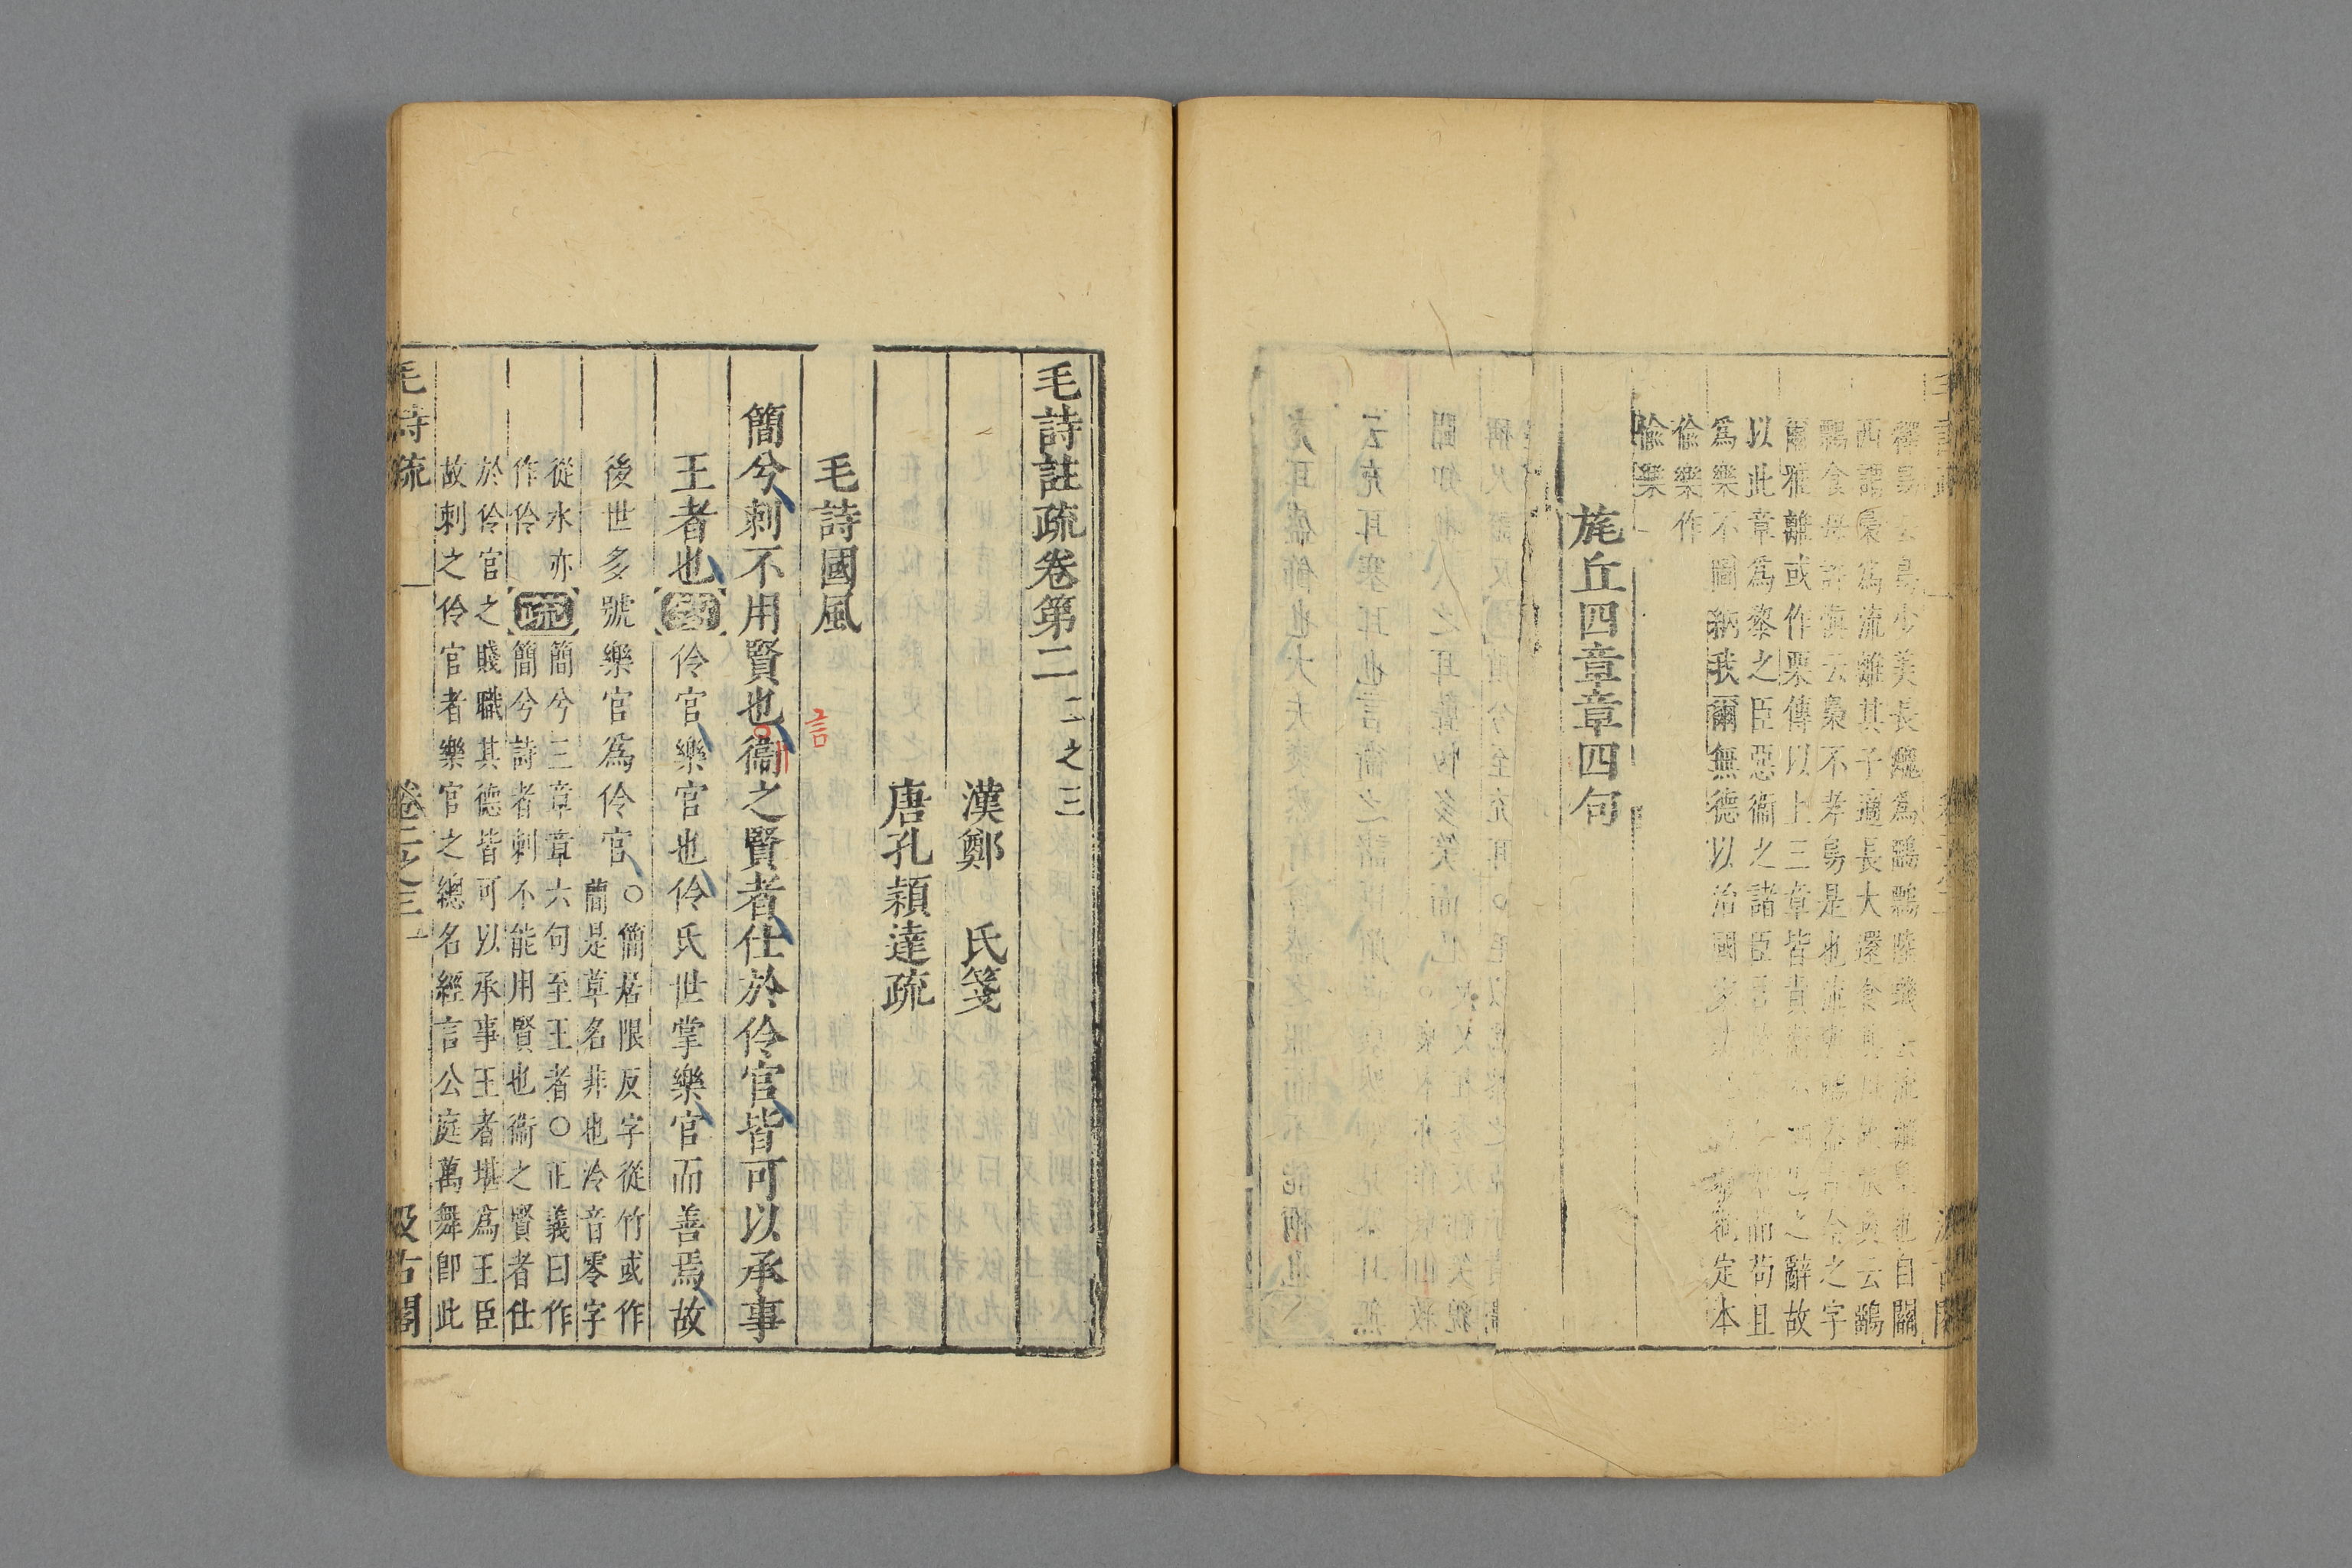 釋鳥云鳥少美長醜爲鶹鷅陸璣云流離梟也自關
西謂梟爲流離其子適長大還食其母故張奐云鶹
鷅食母許慎云梟不孝鳥是也流與鶹蓋古今之字
爾雅離或作栗傳以上三章皆責衛不納己之辭故
以此章爲黎之臣惡衛之諸臣言
苟且
爲樂不圖納我爾無德以治國家
定本
偸樂作
偸樂
旄丘四章章四句
毛詩註疏卷第二 二之三
漢鄭 氏箋
唐孔穎達疏
毛詩國風
言
簡兮刺不用賢也衞之賢者仕於伶官皆可以承事
王者也箋伶官樂官也伶氏世掌樂官而善焉故
後世多號樂官爲伶官
○簡居限反字從竹或作
蕳是草名非也泠音零字
從水亦
作伶
疏
簡兮三章章六句至王者○正義曰作
簡兮詩者刺不能用賢也衞之賢者仕
於伶官之賤職其德皆可以承事王者堪爲王臣
故刺之伶官者樂官之總名經言公庭萬舞卽此
毛詩疏
卷二之三
一
汲古閣